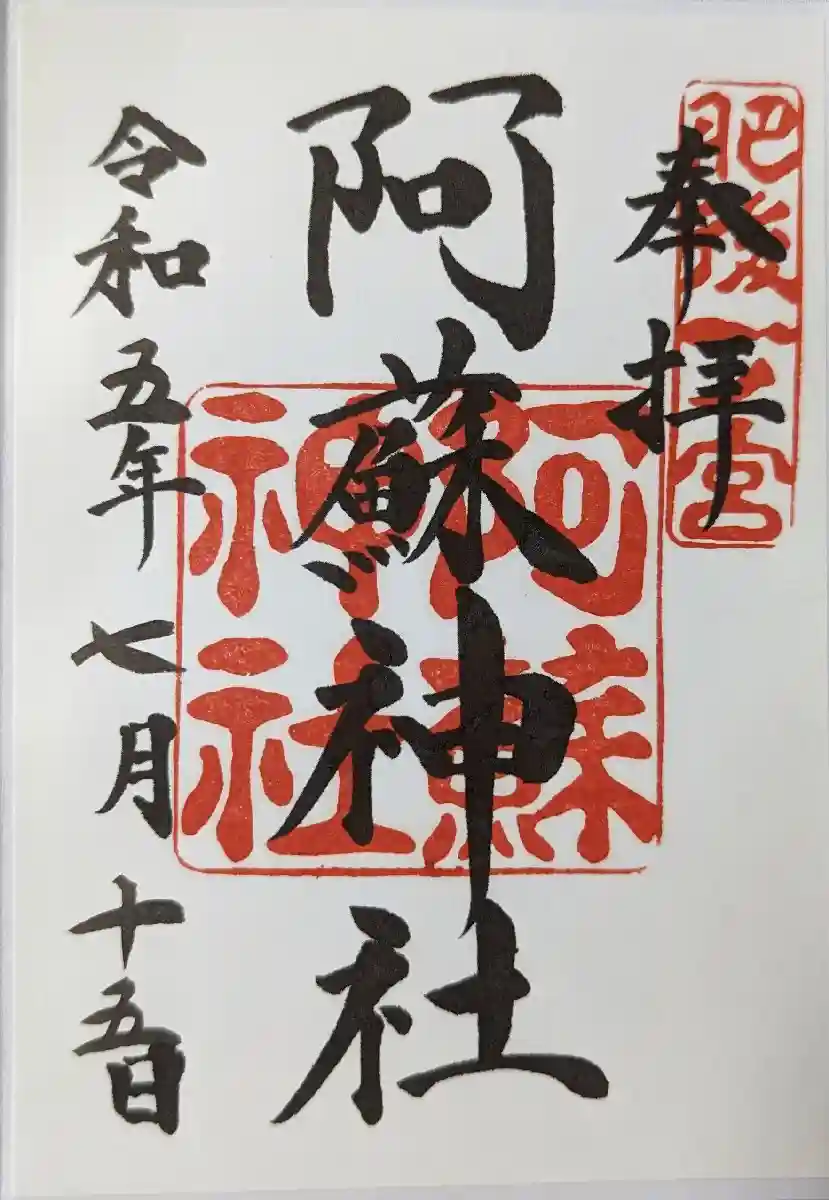 肥後一之宮
奉拝
阿蘇神社
阿蘇神社
令和五年七月十五日